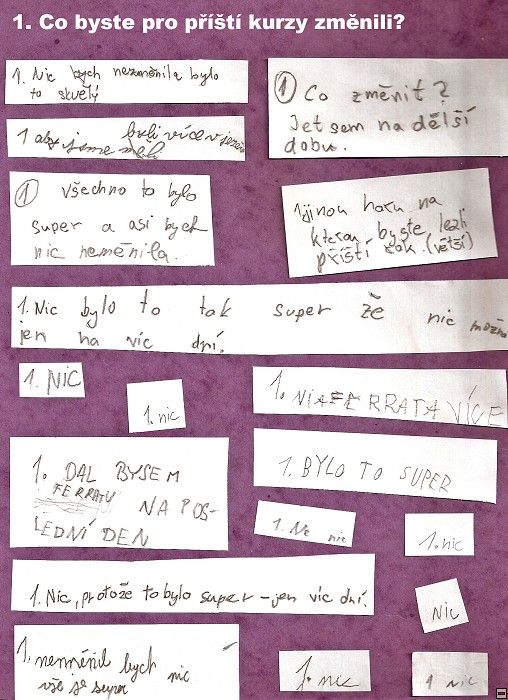 1. Co byste pro příští kurzy změnili?
1. Nic bych nezměnila bylo
to skvělý
1 Co změnit?
Jet sem na dělší
dobu.
1 aby jsme měli
byli více v jezeře
1 všechno to bylo
super a asi bych
nic neměnila.
1 jinou horu na
kterou byste lezli
příští rok. (větší)
1. Nic bylo to tak super že nic možná
jen na víc dní.
1. NIC
1. nic
1. FERRATA VÍCE
1. DAL BYSEM
FERRATU NA POS-
LEDNÍ DEN
1. BYLO TO SUPER
1. Ne nic
1. nic
1. Nic, protože to bylo super - jen víc dní.
NIC
1. neměnil bych nic
vše je super
1. nic
1 nic